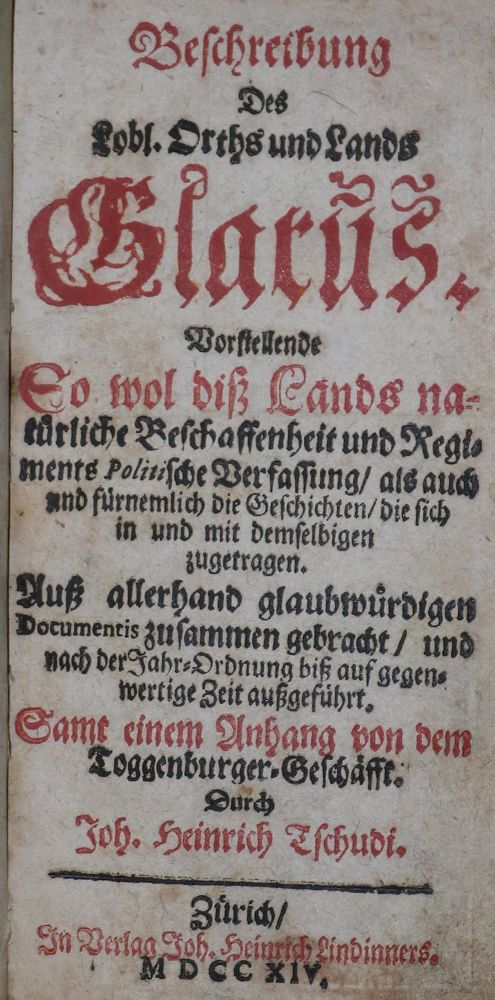 Beschreibung
Des
Lobl. Orths und Lands
Glarus.
Vorstellende
So wol diß Lands na-
türliche Beschaffenheit und Regi-
ments Politische Verfassung/ als auch
und fürnemlich die Geschichten/ die sich
in und mit demselbigen
zugetragen.
Auß allerhand glaubwürdigen
Documentis zusammen gebracht/ und
nach der Jahr-Ordnung biß auf gegen-
wertige Zeit außgeführt.
Samt einem Anhang von dem
Toggenburger-Geschäfft.
Durch
Joh. Heinrich Tschudi.
Zürich/
In Verlag Joh. Heinrich Lindinners.
M D CC XIV.